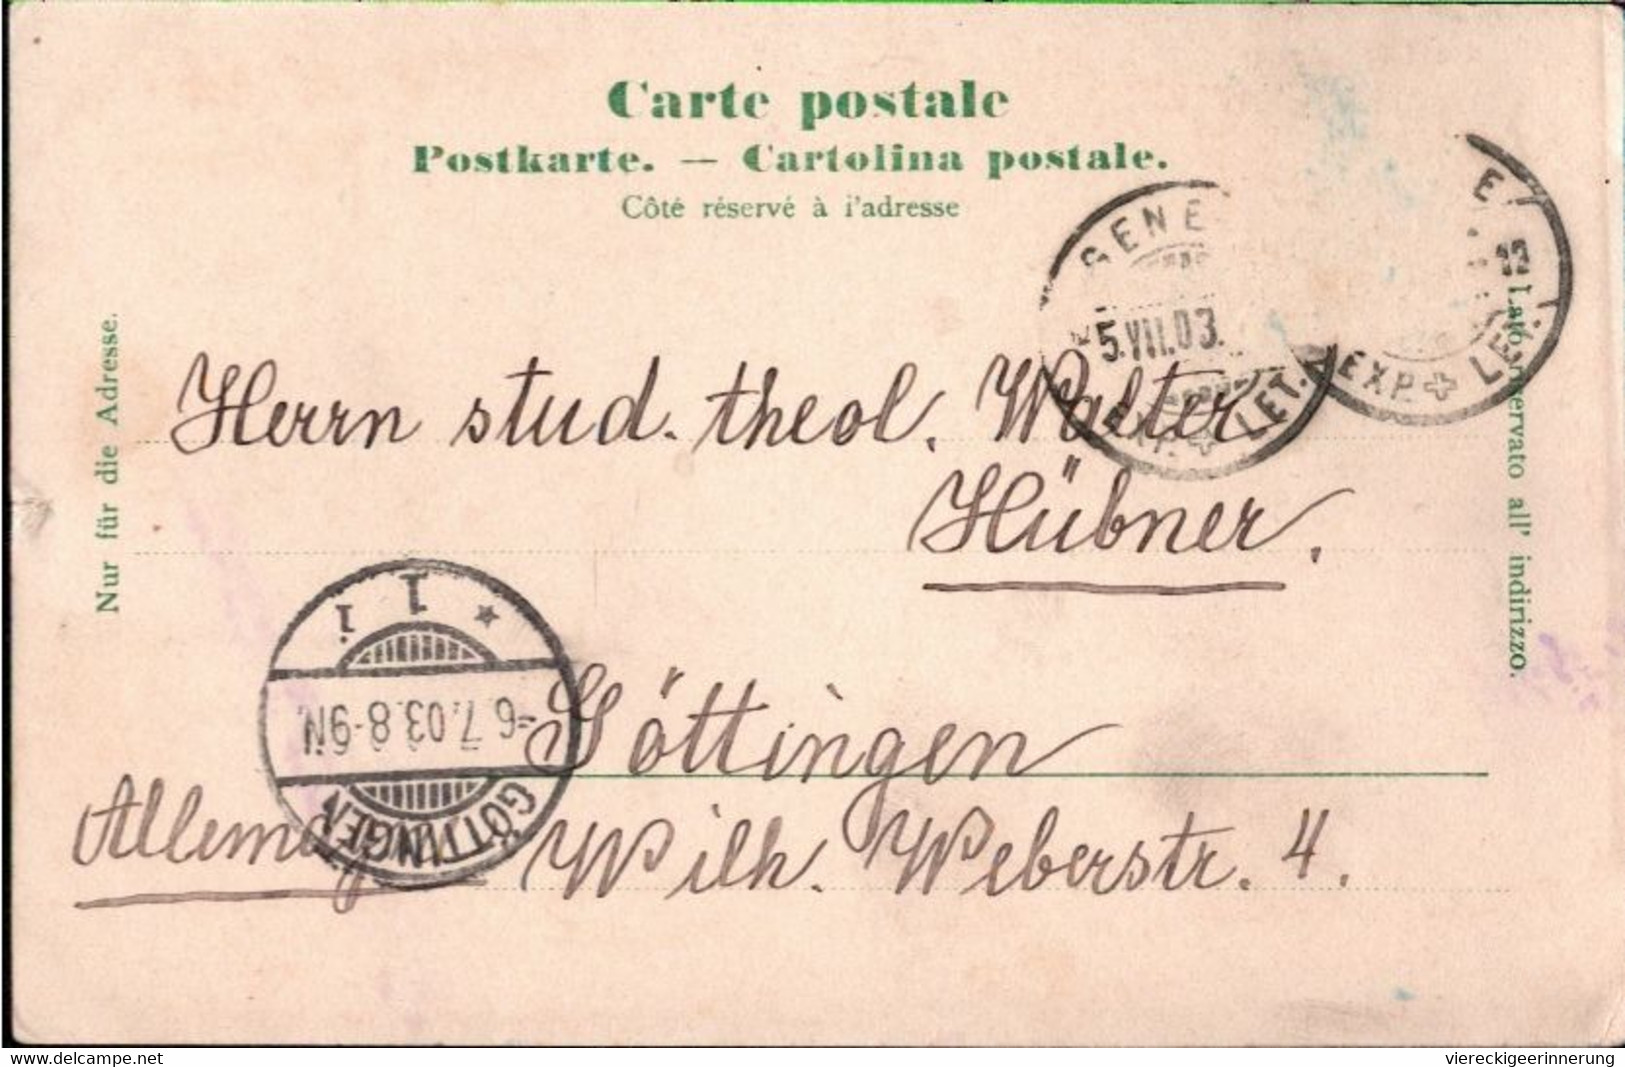 Carte postale
Postkarte. — Cartolina postale.
Côté réservé à l'adresse
Nur für die Adresse.
Lato riservato all' indirizzo.
GENE
5.VII.03.
EXP. LET.
E
EXP. LET.
Herrn stud. theol. Walter
Hübner.
1 i
-6.7.03.8-9N.
GÖTTINGEN
Göttingen
Allemagne
Wilh. Weberstr. 4.
www.delcampe.net
viereckigeerinnerung